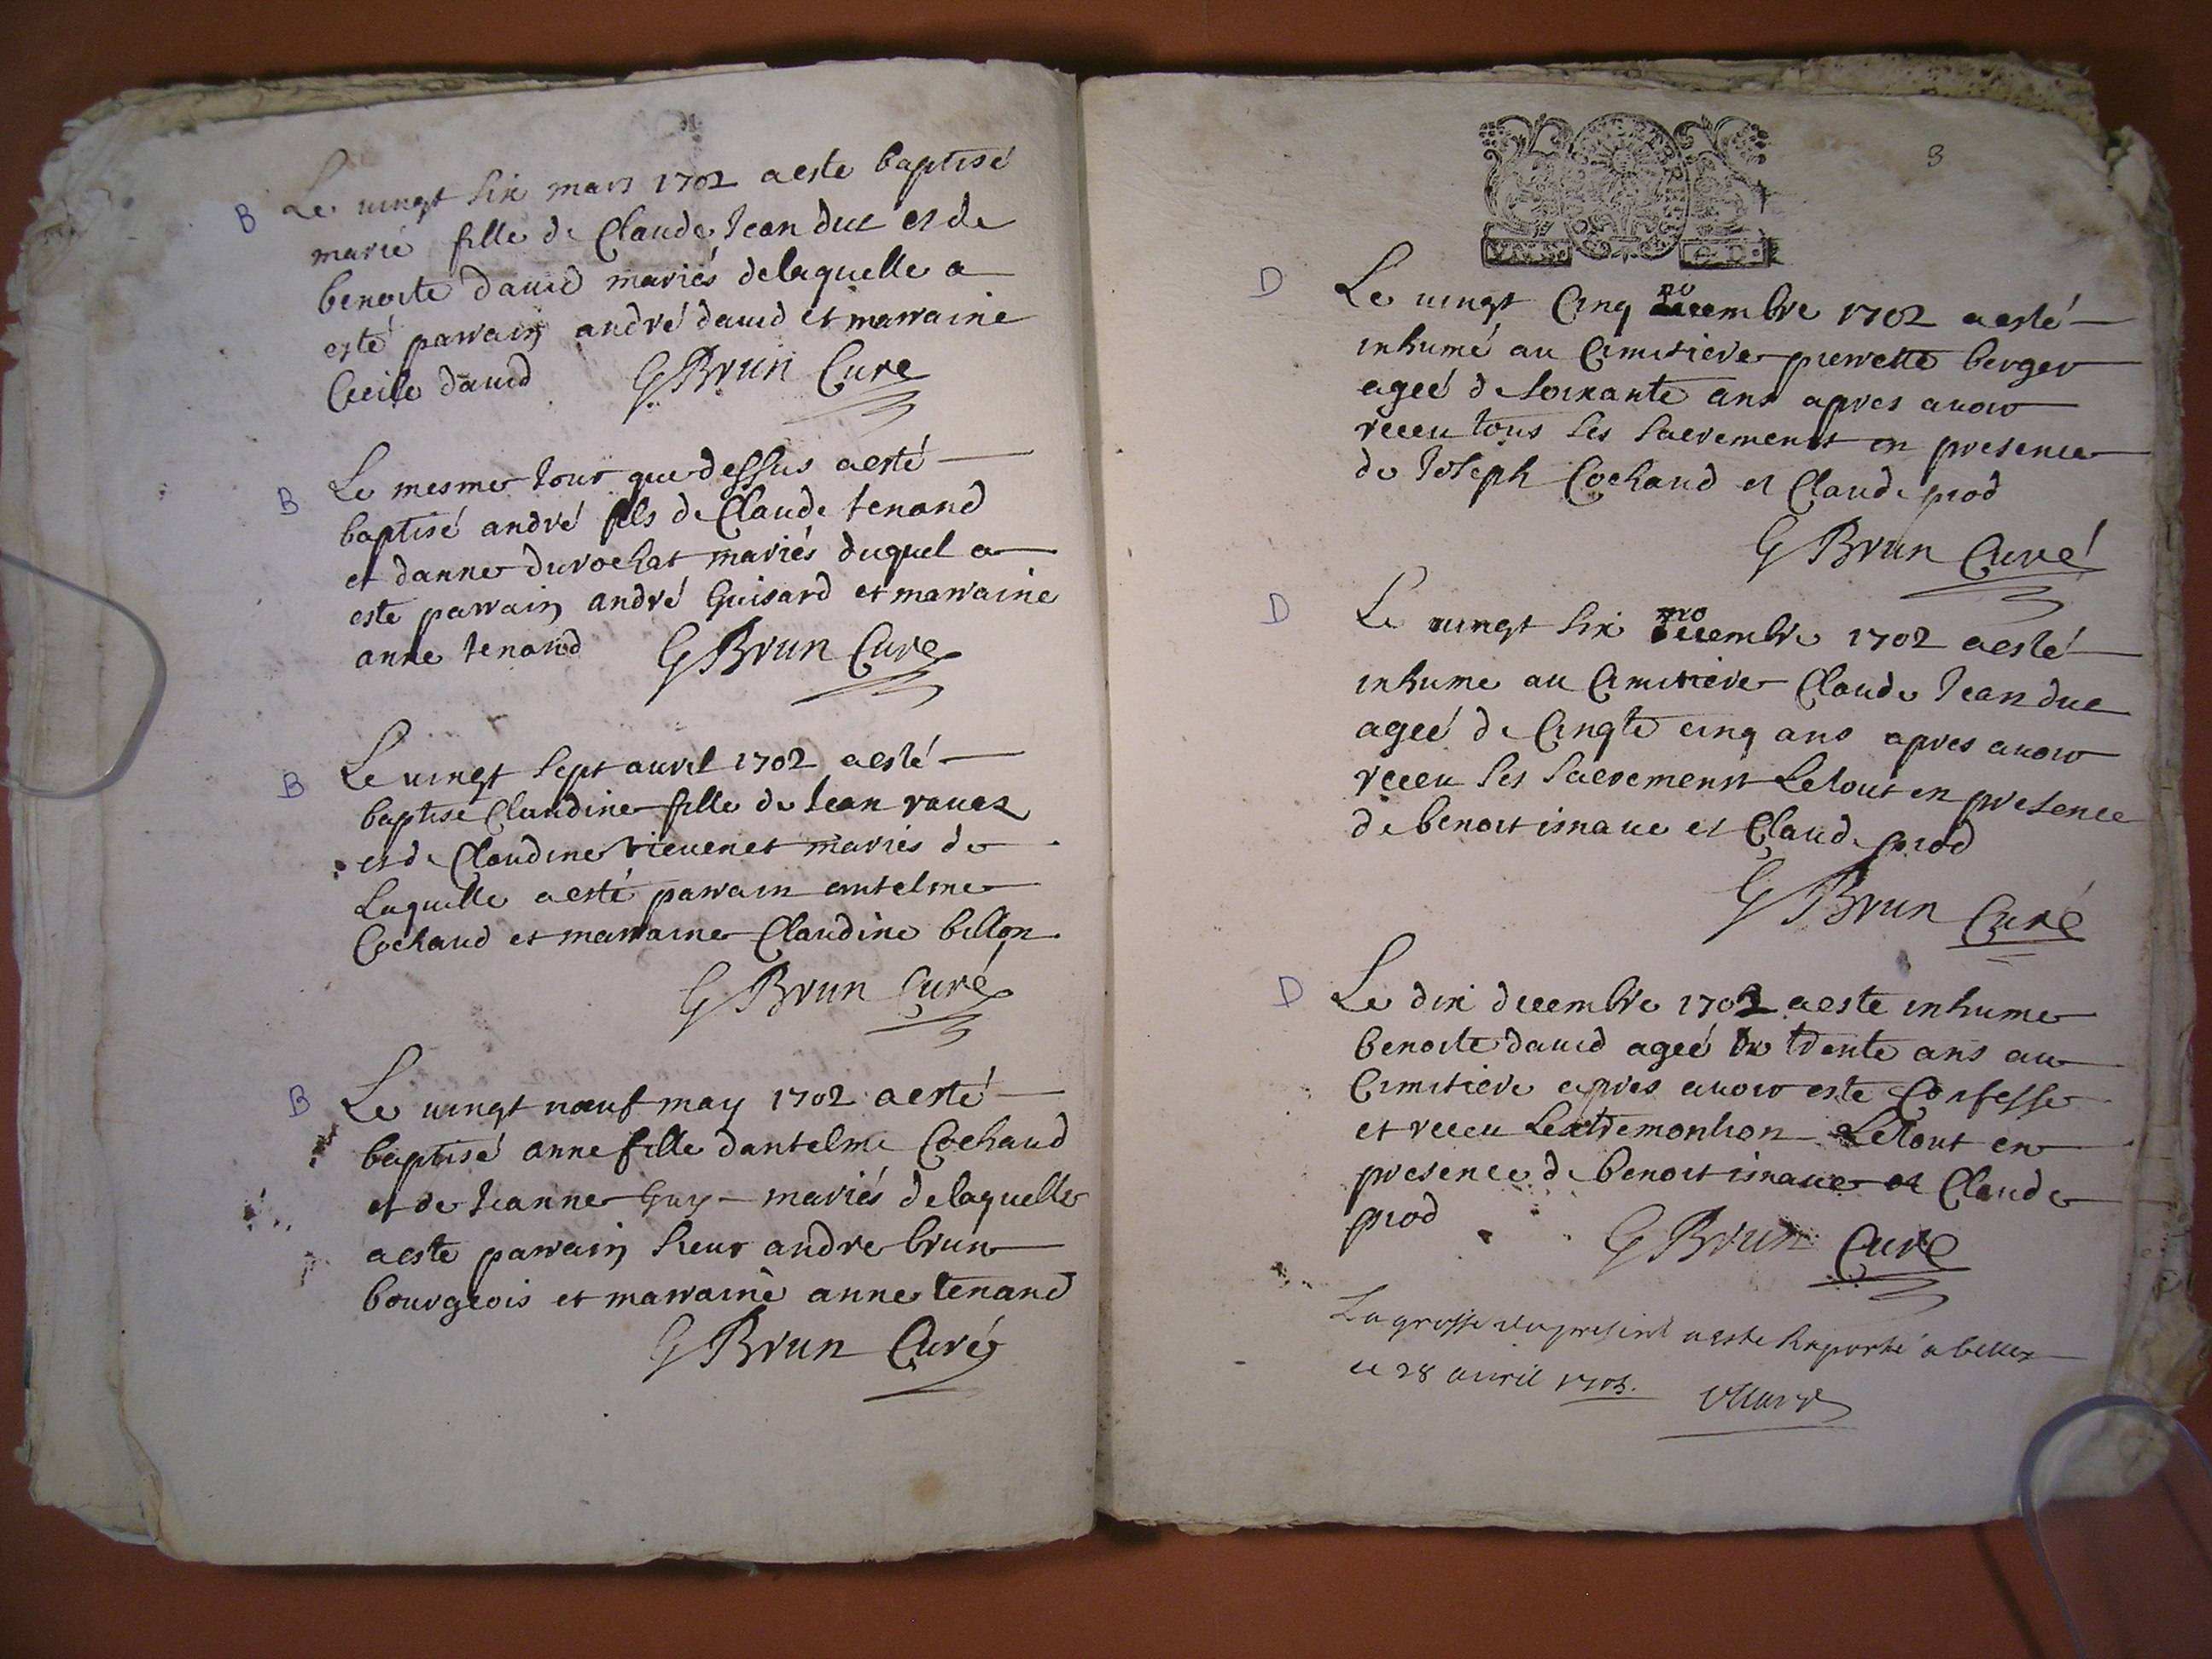 B Le uingt Six mars 1702 a este baptisé
marie fille de Claude Jean duc et de
benoite dauid mariés de laquelle a
esté parrain andré dauid et marraine
Cecile dauid G Brun Cure
B Le mesme Jour que dessus a esté
baptisé andré fils de Claude tenand
et danne durochat mariés duquel a
este parrain andré Guisard et marraine
anne tenand G Brun Cure
B Le uingt Sept auril 1702 a esté
baptise Claudine fille de Jean rauez
et de Claudine mariés de
Laquelle a esté parrain antelme
Cochaud et marraine Claudine billon
G Brun Curé
B Le uingt nœuf may 1702 a esté
baptisé anne fille dantelme Cochaud
et de Jeanne Guy mariés de laquelle
a este parrain Sieur andre brun
bourgeois et marraine anne tenand
G Brun Curé
3
D Le uingt Cinq no 1702 a esté
inhumé au Cimitiere pierrette berger
ageé de Soixante ans apres auoir
receu tous Ses Sacrements en presence
de Joseph Cochaud et Claude prod
G Brun Curé
D Le uingt Six no 1702 a esté
inhume au Cimitiere Claude Jean duc
ageé de Cinqte cinq ans apres auoir
receu Ses Sacrements Le tout en presence
de benoit et Claude prod
G Brun Curé
D Le dix decembre 1702 a este inhume
benoite dauid ageé de trente ans au
Cimitiere apres auoir este Confesse
et receu Lextremontion Le tout en
presence de benoit et Claude
prod G Brun Curé
La grosse du present a este Raporté a belley
ce 28 auril